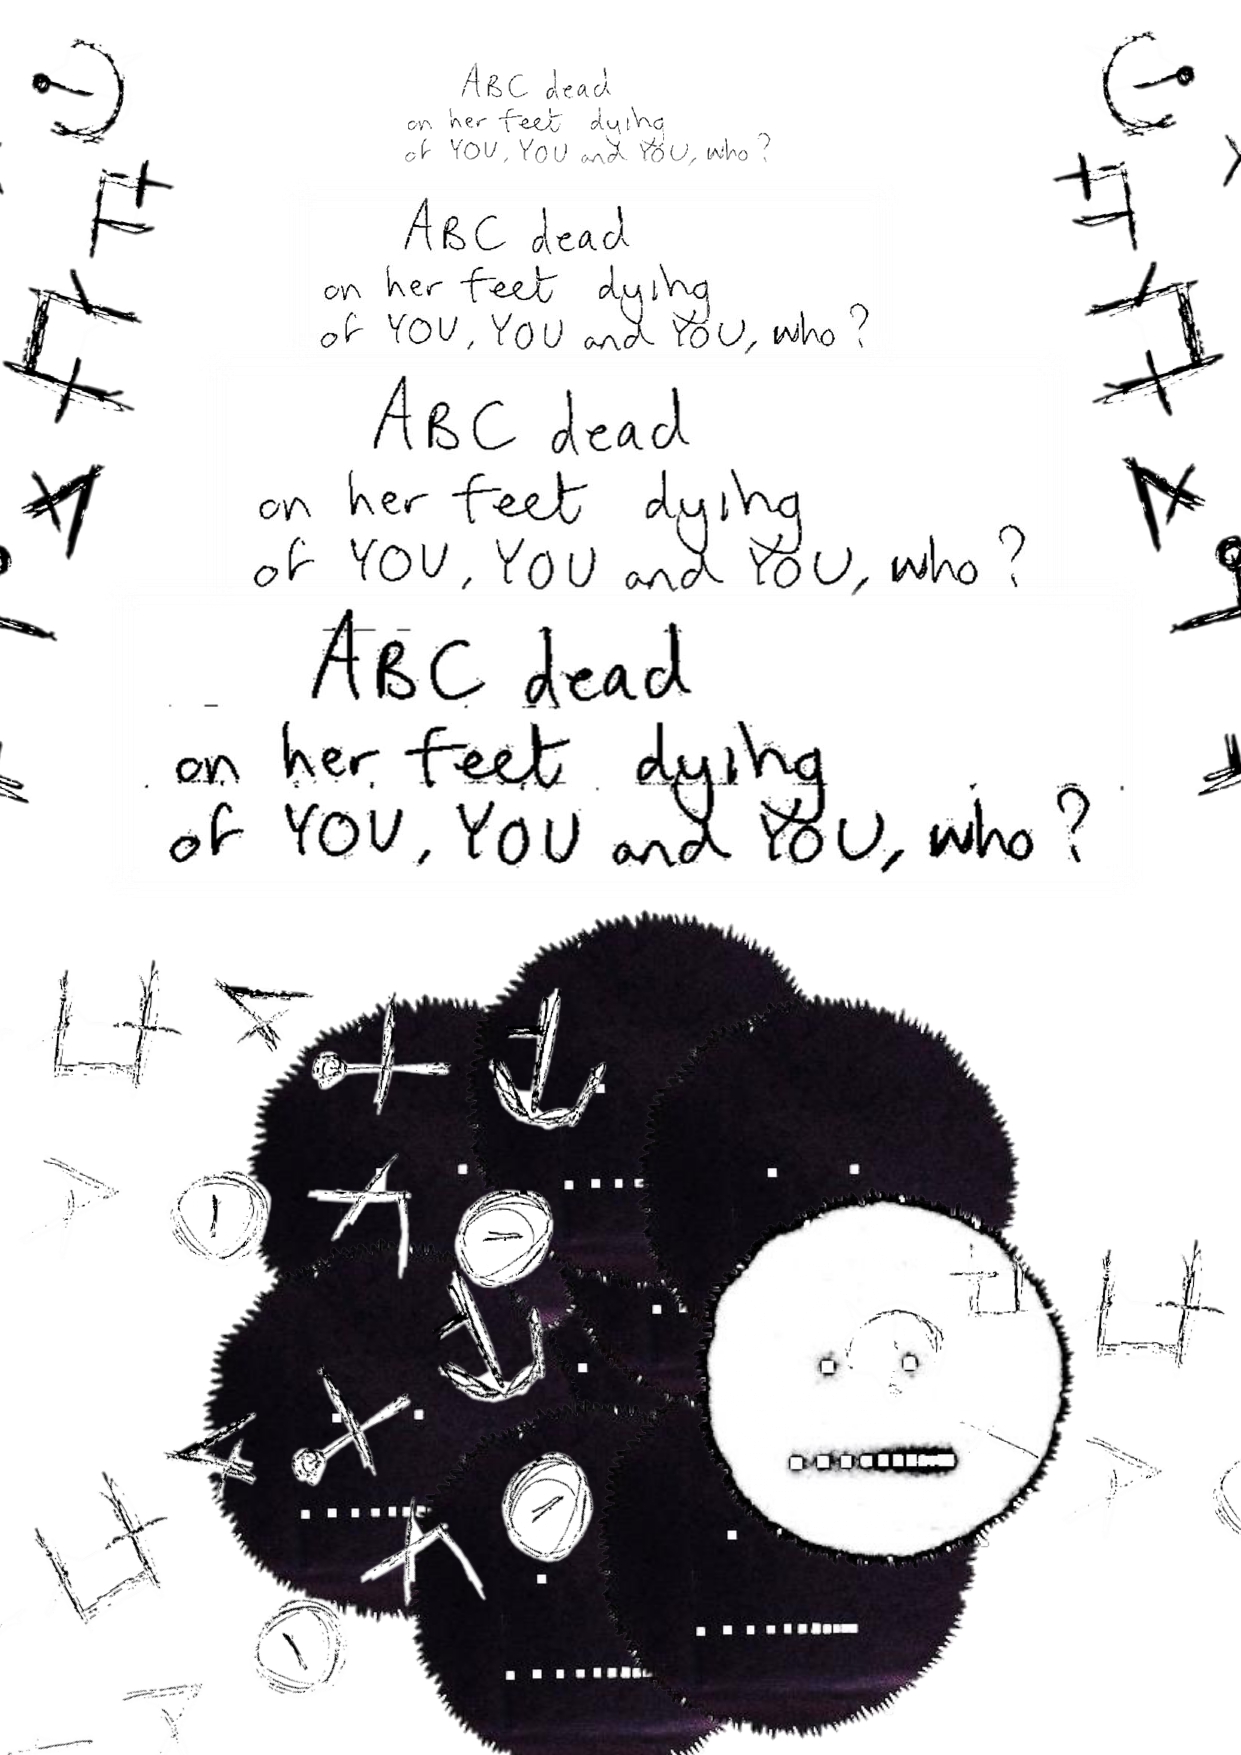 ABC dead
on her feet dying
of YOU, YOU and YOU, who?
ABC dead
on her feet dying
of YOU, YOU and YOU, who?
ABC dead
on her feet dying
of YOU, YOU and YOU, who?
ABC dead
on her feet dying
of YOU, YOU and YOU, who?